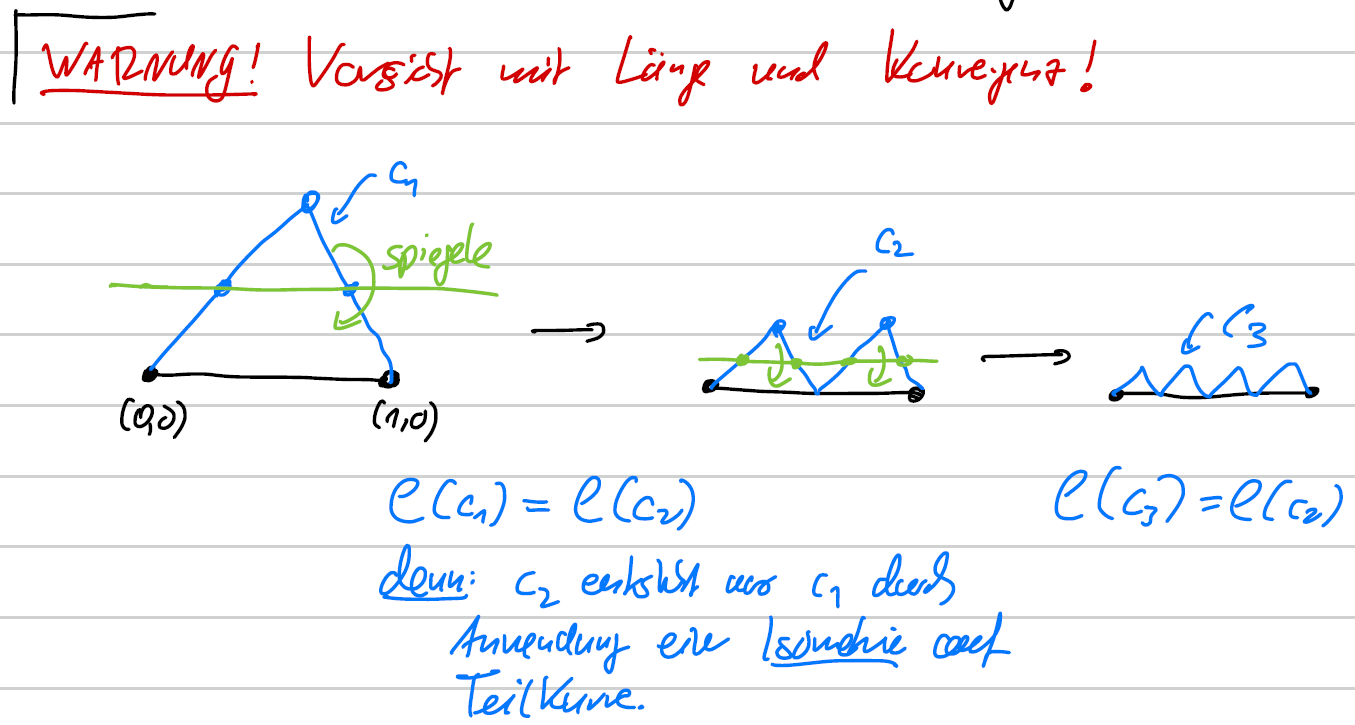 WARNUNG! Vorsicht mit Länge und Konvergenz!
c₁
spiegele
c₂
c₃
(0,0)
(1,0)
l(c₁) = l(c₂)
l(c₃) = l(c₂)
denn: c₂ entsteht aus c₁ durch
Anwendung einer Isometrie auf
Teilkurve.